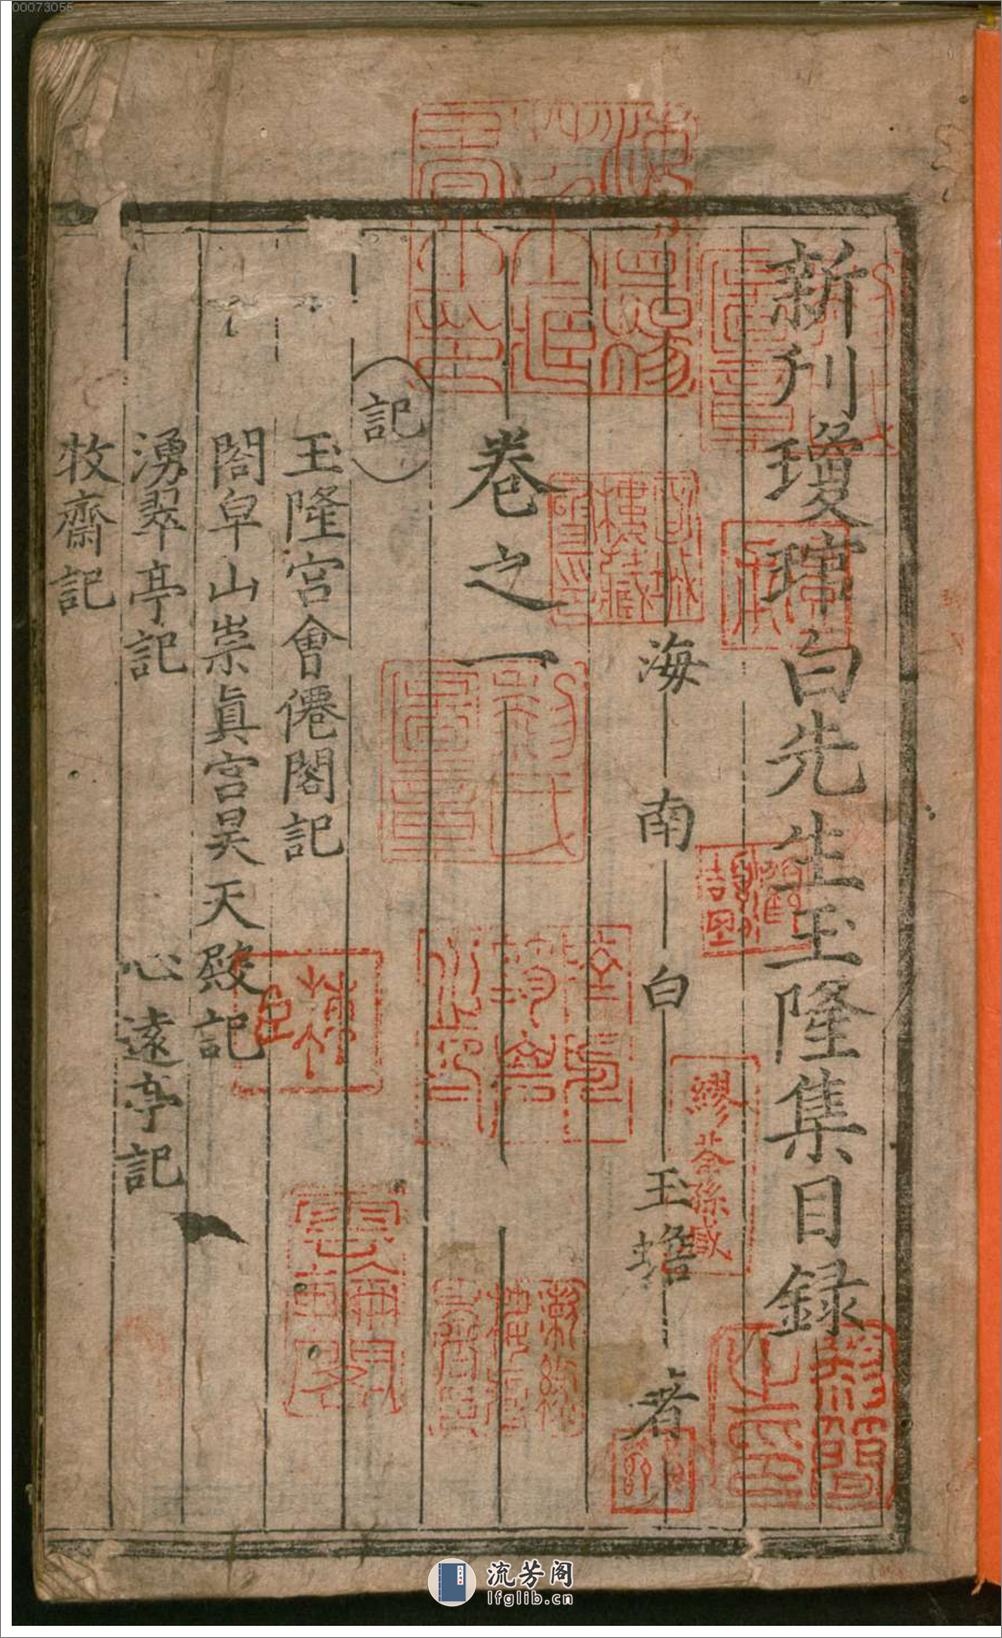 新刊瓊琯白先生玉隆集目錄
海南白玉蟾著
卷之一
記
玉隆宮會僊閣記
閤皁山崇眞宮昊天殿記
湧翠亭記 心遠亭記
牧齋記
繆荃孫藏
雲輪閣
荃孫
00073055
流芳阁
lfglib.cn